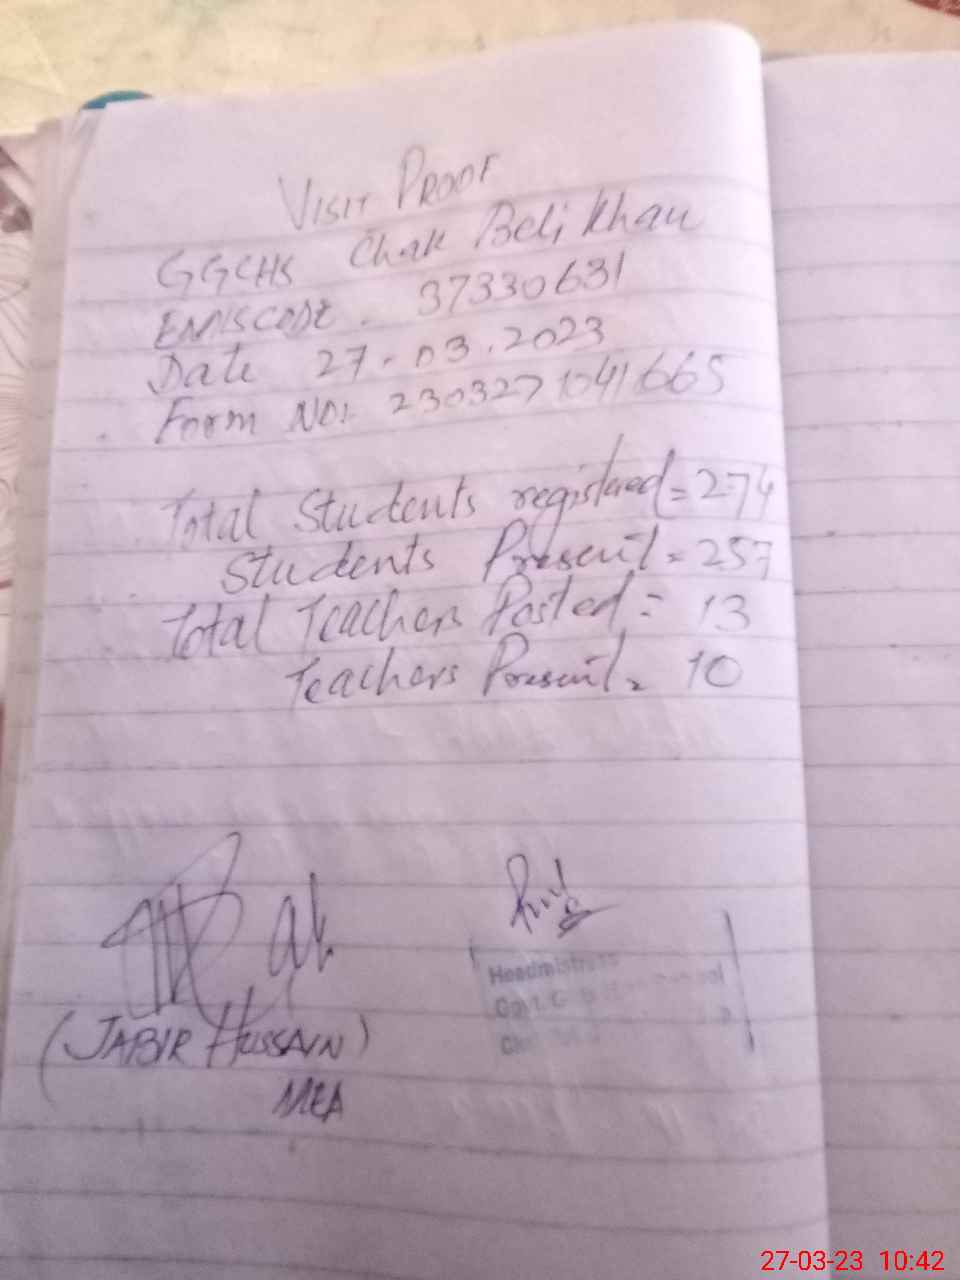 VISIT PROOF
GGCHS Chak Beli Khan
EMISCODE. 37330631
Date 27-03.2023
Form NO:- 2303271041665
Total Students registered = 274
Students Present = 257
Total Teachers Posted = 13
Teachers Present = 10
(JABIR HUSSAIN)
MEA
Headmistress
Govt. G
27-03-23 10:42